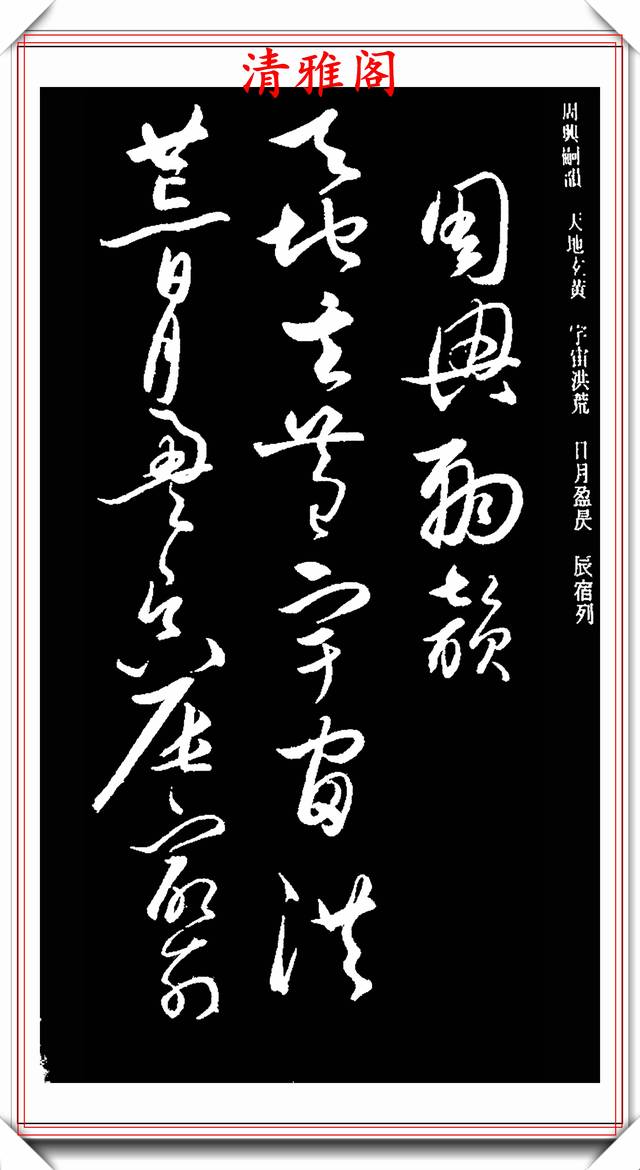 清雅阁
周興嗣韻 天地玄黄 宇宙洪荒 日月盈昃 辰宿列
周興嗣韻
天地玄黄宇宙洪
荒日月盈昃辰宿列